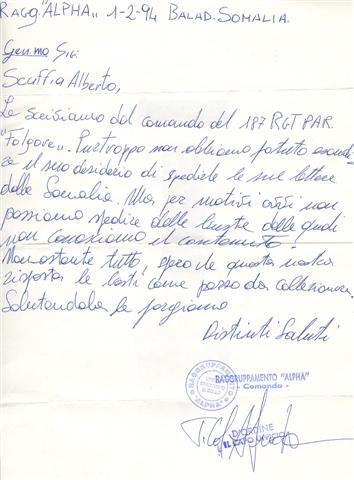 RAGG. "ALPHA" 1-2-94 BALAD. SOMALIA.
Gen.mo Sig.
Scuffia Alberto,
Le scriviamo dal comando del 187 RGT PAR.
"Folgore". Purtroppo non abbiamo potuto esaudi-
re il suo desiderio di spedire le sue lettere
dalla Somalia. Ma per motivi ovvi non
possiamo spedire delle buste delle quali
non conosciamo il contenuto!
Nonostante tutto, spero che questa nostra
risposta le basti come pezzo da collezionare.
Salutandola le porgiamo
Distinti Saluti
RAGGRUPPAMENTO "ALPHA"
- Comando -
RAGGRUPPAMENTO
"ALPHA"
D'ORDINE
IL CAPO UFFICIO